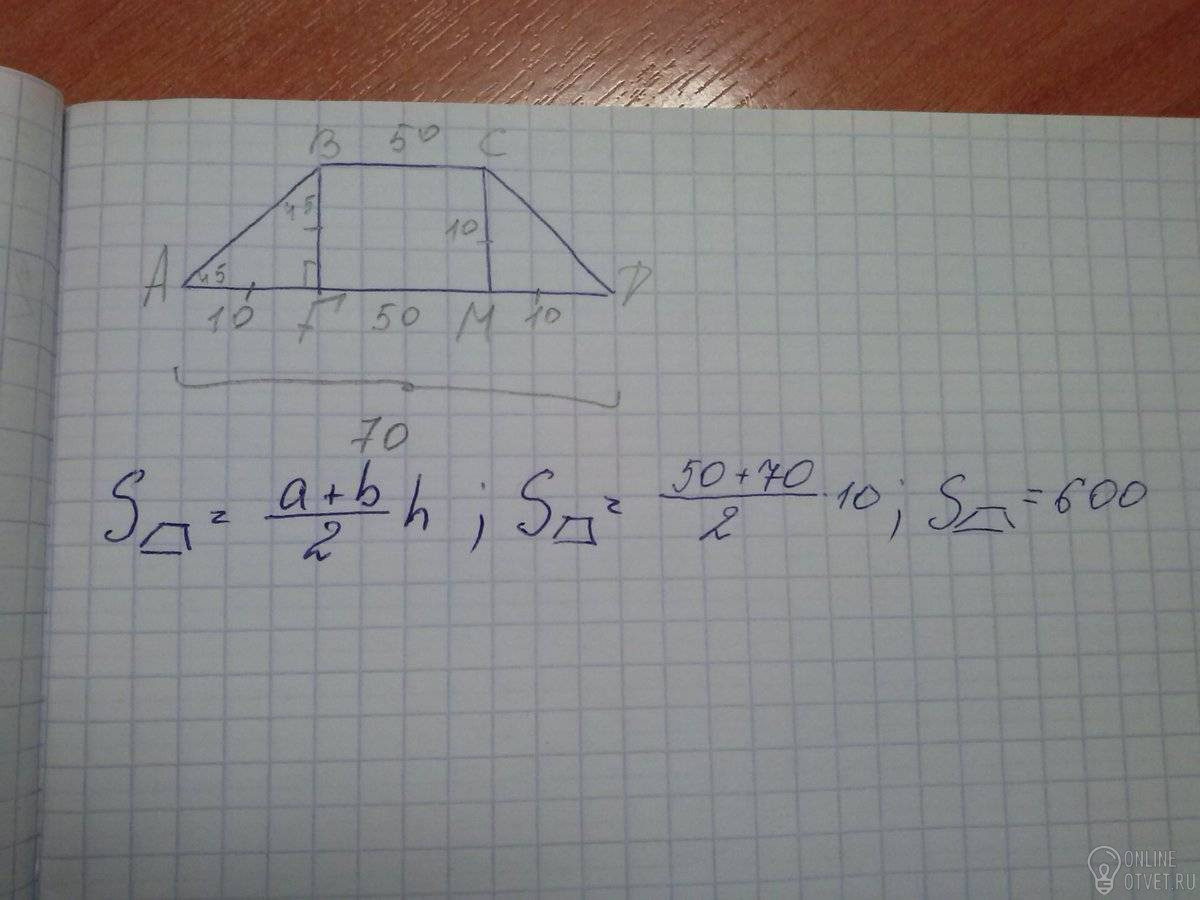 B 50 C
45 10
A 45 D
10 Г 50 M 10
70
S = a+b/2 h ; S = 50+70/2 · 10 ; S = 600
ONLINE
OTVET.RU